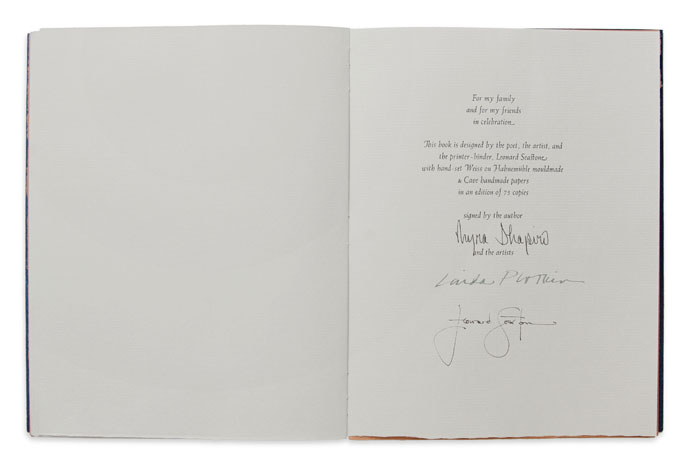 For my family
and for my friends
in celebration.
This book is designed by the poet, the artist, and
the printer-binder, Leonard Seastone,
with hand-set Weiss on Hahnemühle mouldmade
& Cave handmade papers
in an edition of 75 copies
signed by the author
Myra Shapiro
and the artists
Linda Plotkin
Leonard Seastone